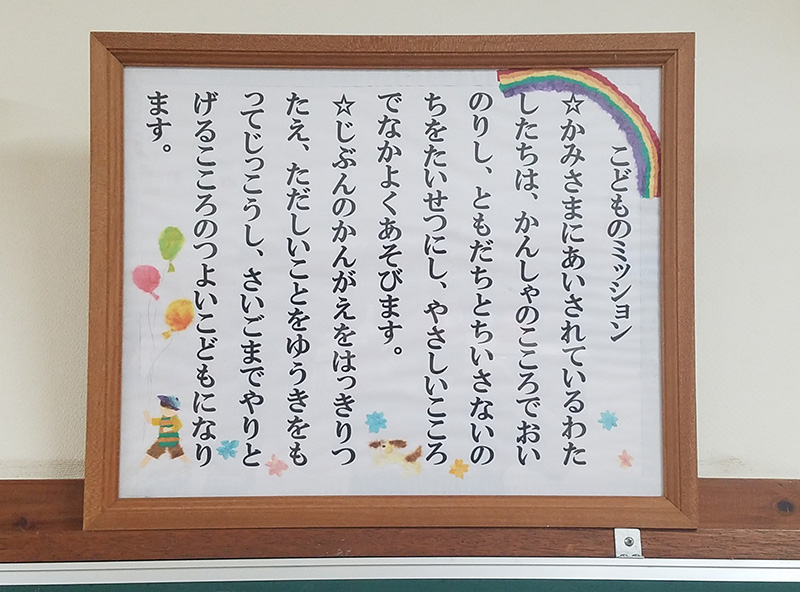 こどものミッション
☆かみさまにあいされているわた
したちは、かんしゃのこころでおい
のりし、ともだちとちいさないの
ちをたいせつにし、やさしいこころ
でなかよくあそびます。
☆じぶんのかんがえをはっきりつ
たえ、ただしいことをゆうきをも
ってじっこうし、さいごまでやりと
げるこころのつよいこどもになり
ます。